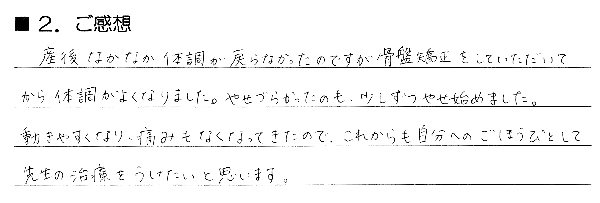 ■２．ご感想
産後なかなか体調が戻らなかったのですが骨盤矯正をしていただいて
から体調がよくなりました。やせづらかったのも、少しずつやせ始めました。
動きやすくなり、痛みもなくなってきたので、これからも自分へのごほうびとして
先生の治療をうけたいと思います。